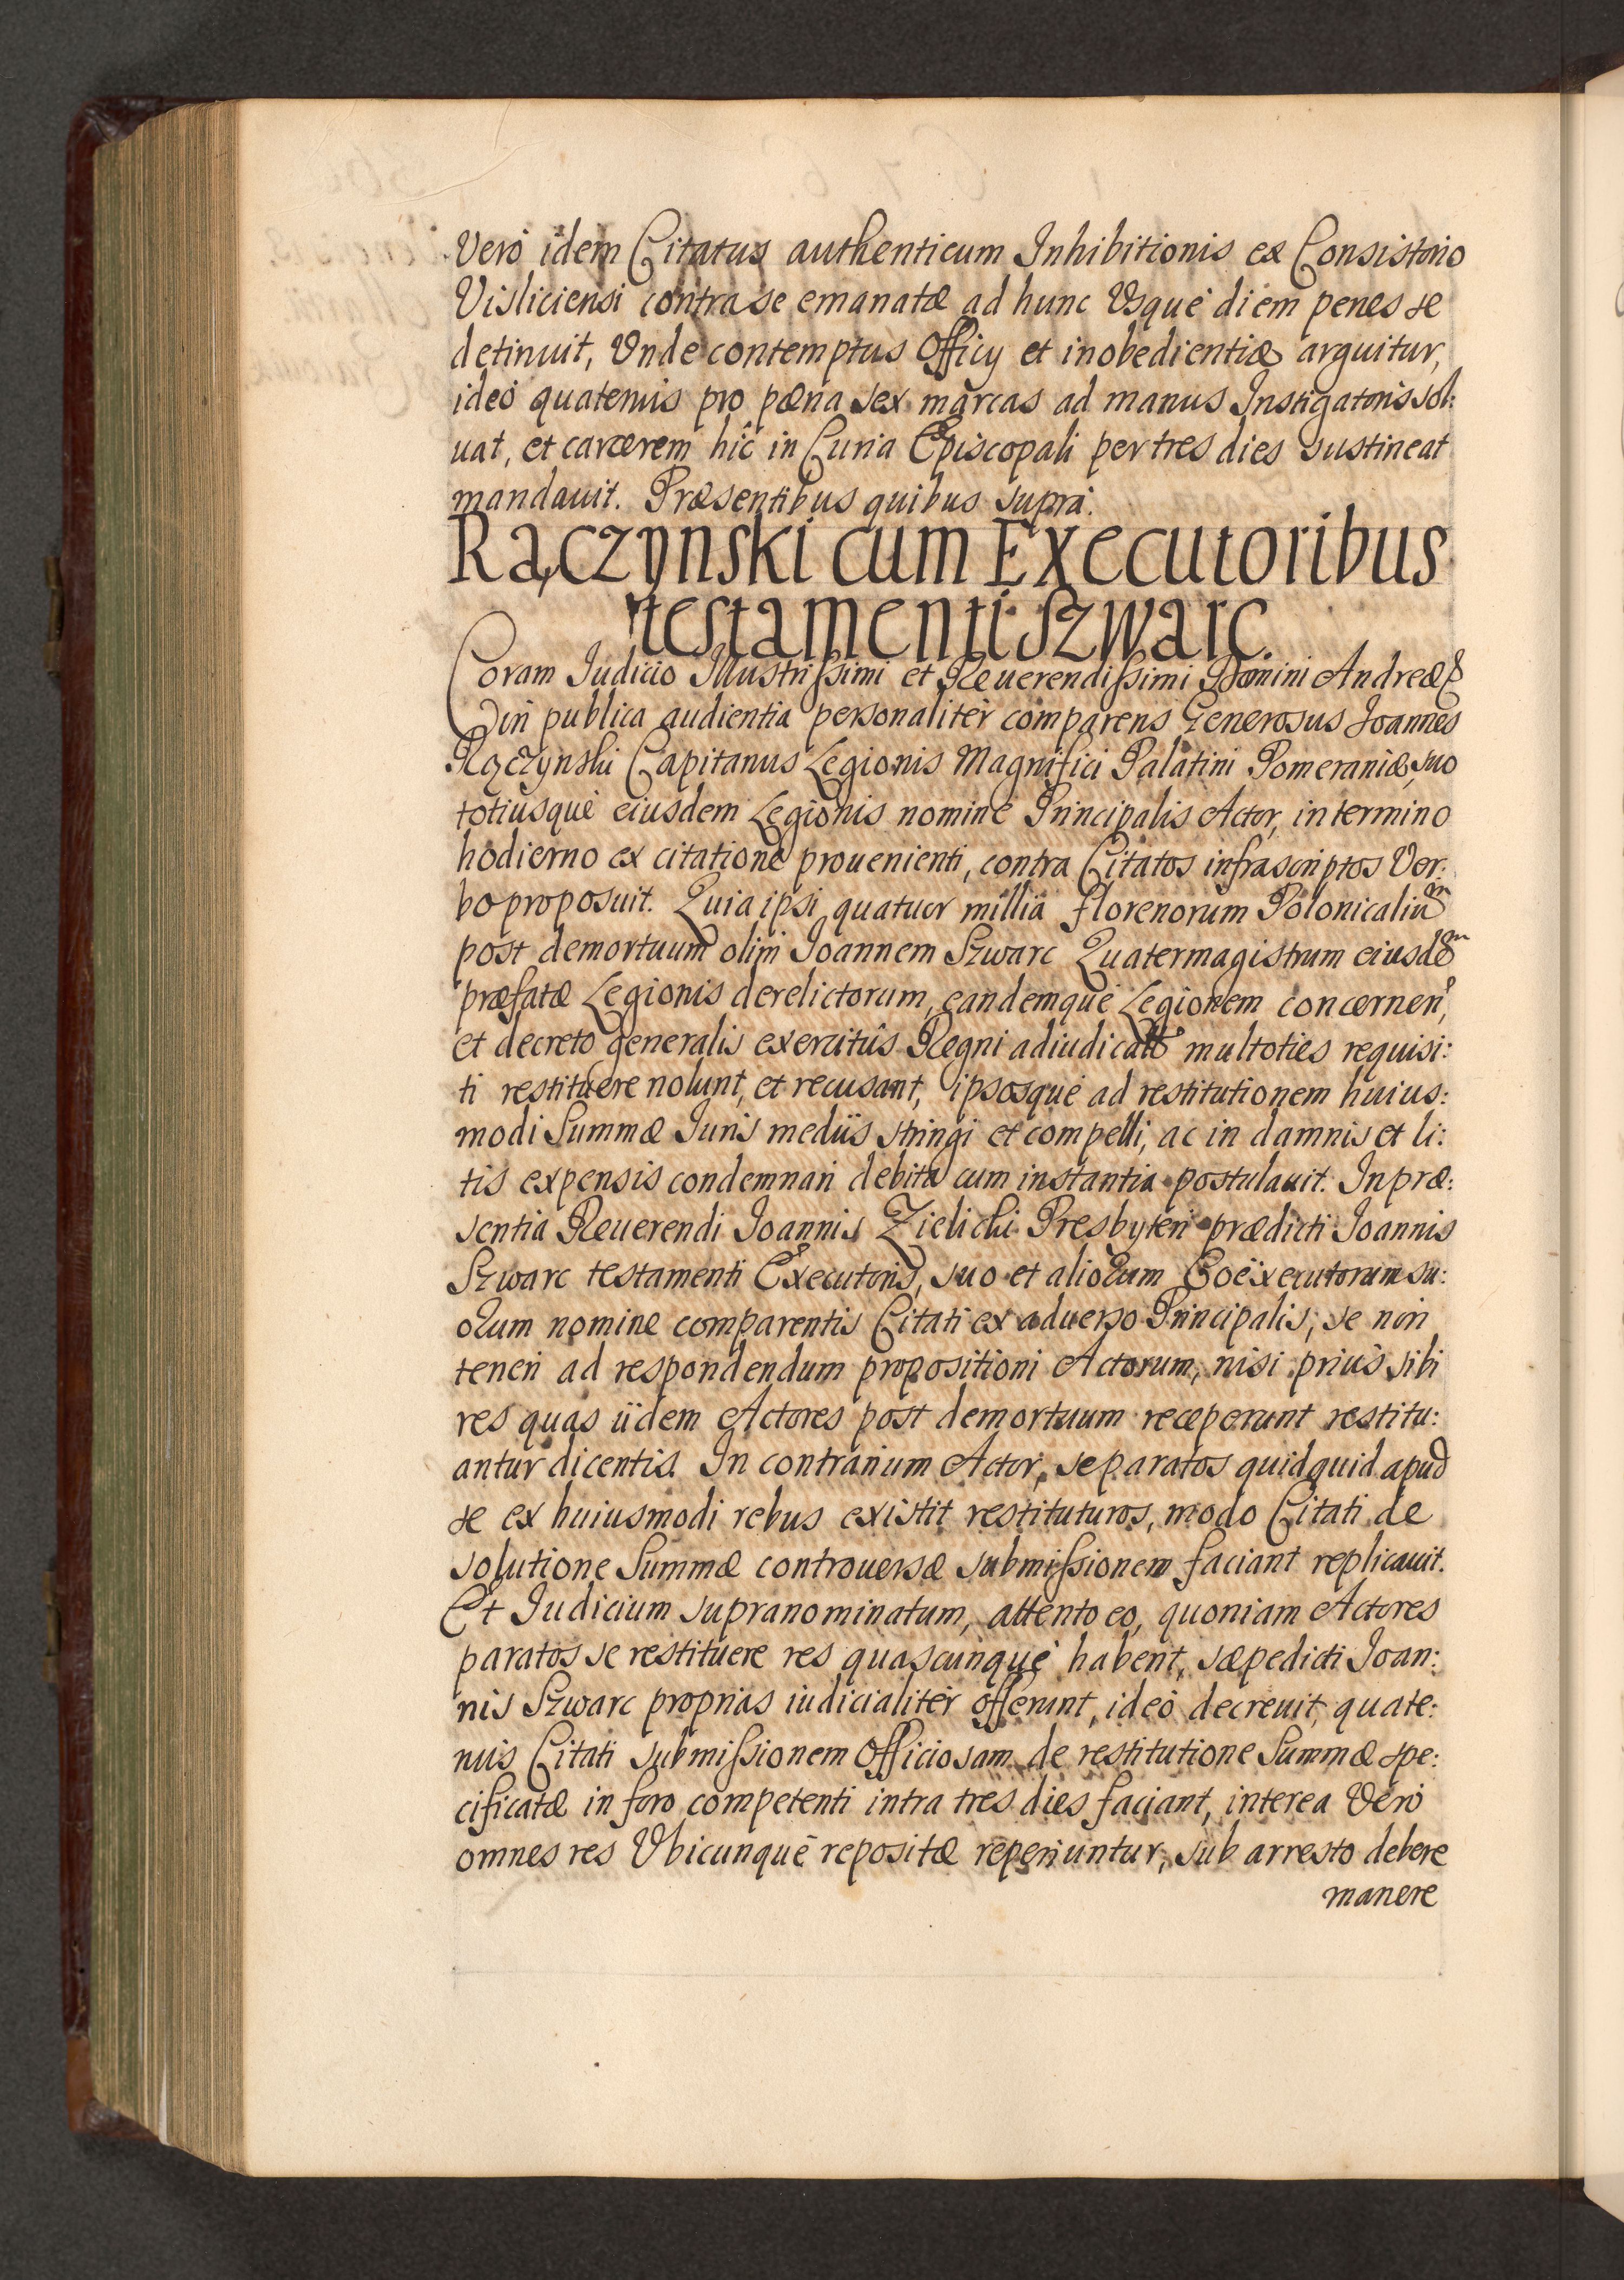 Verò idem Citatus authenticum Inhibitionis ex Consistorio
Visliciensi contra se emanatæ ad hunc Vsquè diem penes se
detinuit, Vnde contemptus Officij et inobedientiæ arguitur,
ideò quatenus pro pæna sex marcas ad manus Instigatoris sol:
uat, et carcerem hîc in Curia Episcopali per tres dies sustineat
mandauit. Præsentibus quibus suprà.
Rączynski cum Executoribus
testamenti Szwarc.
Coram Iudicio Illustrissimi et Reuerendissimi Domini Andreæ
in publica audientia personalitèr comparens Generosus Joannes
Rączynski Capitanus Legionis Magnifici Palatini Pomeraniæ, suo
totiusquè eiusdem Legionis nominè Principalis Actor, in termino
hodierno ex citationè prouenienti, contra Citatos infrascriptos Ver:
bo proposuit. Quia ipsi quatuor millia florenorum Polonicaliũ
post demortuum olim Joannem Szwarc Quatermagistrum eiusdẽ
præfatæ Legionis derelictorum, eandemquè Legionem concernen,
et decreto generalis exercitûs Regni adiudicat multoties requisi:
ti restituere nolunt, et recusant, ipsosquè ad restitutionem huius:
modi Summæ Iuris mediis stringi et compelli, ac in damnis et li:
tis expensis condemnari debita cum instantia postulauit. In præ:
sentia Reuerendi Joannis Zielicki Presbyteri prædicti Joannis
Szwarc testamenti Executoris, suo et aliorum Coëxecutorum su:
orum nomine comparentis Citati ex aduerso Principalis, se non
teneri ad respondendum propositioni Actorum, nisi priùs sibi
res quas iidem Actores post demortuum receperunt restitu:
antur dicentis. In contrarium Actor, se paratos quidquid apud
se ex huiusmodi rebus existit restituturos, modo Citati de
solutione Summæ controuersæ submissionem faciant replicauit.
Et Iudicium supranominatum, attento eo, quoniam Actores
paratos se restituere res quascunquè habent, sæpedicti Joan:
nis Szwarc proprias iudicialitèr offerunt, ideò decreuit, quate:
nus Citati submissionem Officiosam de restitutione Summæ spe:
cificatæ in foro competenti intra tres dies faciant, interea Verò
omnes res Vbicunquè repositæ reperiuntur, sub arresto debere
manere